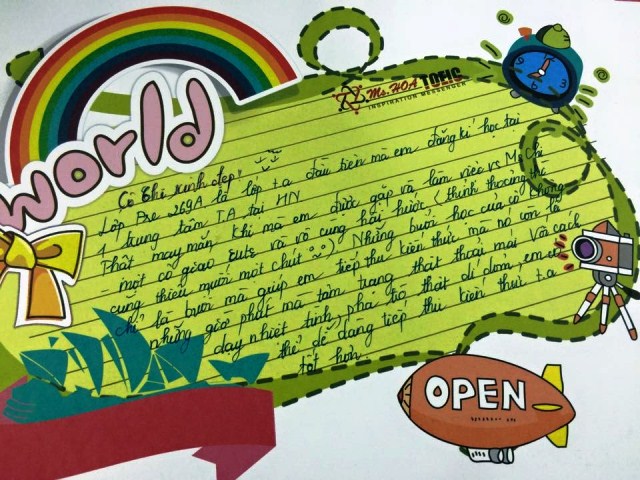 world
Ms. HOA TOEIC
INSPIRATION MESSENGER
Cô Chi xinh đẹp!
Lớp Pre 269A là lớp t.a đầu tiên mà em đăng kí học tại
1 trung tâm TA tại HN
Phật may mắn khi mà em được gặp và làm việc vs Ms Chi
- một cô giáo cute và vô cùng hài hước (thỉnh thoảng thì
cũng thiếu muối một chút). Những buổi học của cô không
chỉ là buổi mà giúp em tiếp thu kiến thức mà nó còn là
những giờ phút mà tâm trạng thất thoải mái. Với cách
dạy nhiệt tình, pha trò thất dí dỏm, em
thể dễ dàng tiếp thu kiến thức t.a
tốt hơn
OPEN